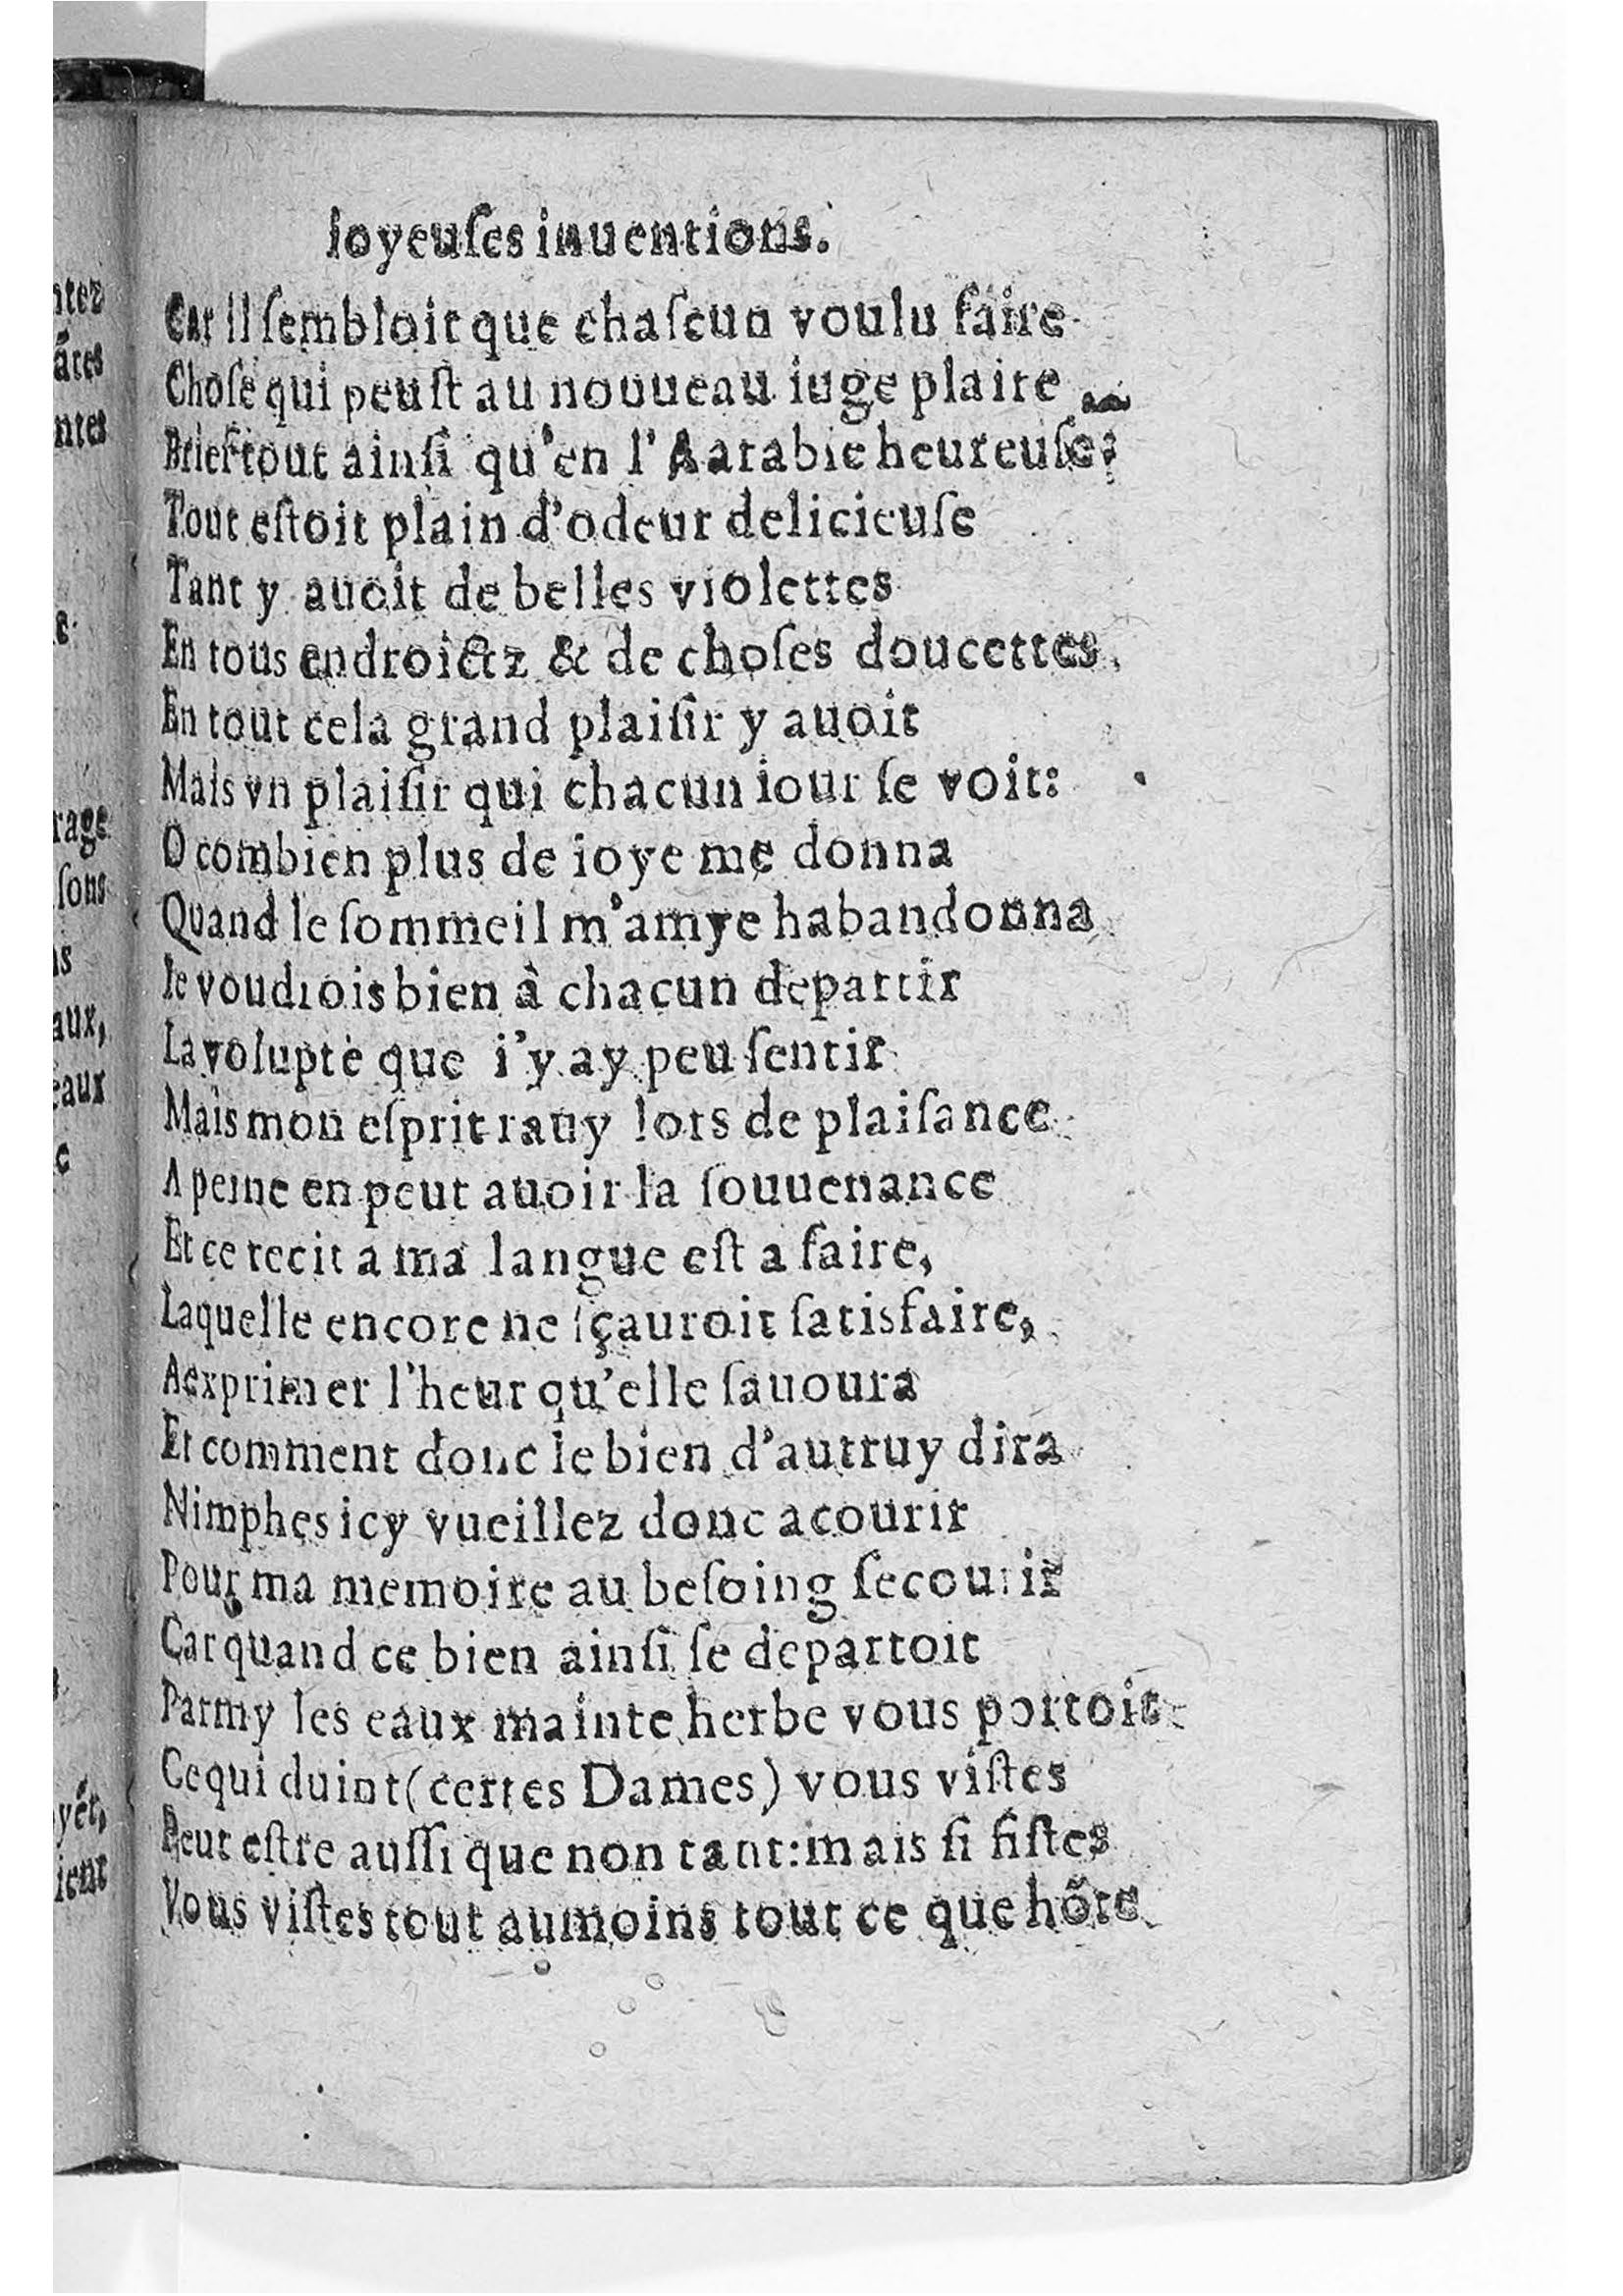 Ioyeuſes inuentions.
Car il ſembloit que chaſcun voulu faire
Choſe qui peuſt au nouueau iuge plaire
Brief tout ainſi qu'en l'Aarabie heureuſe:
Tout eſtoit plain d'odeur delicieuſe
Tant y auoit de belles violettes
En tous endroictz & de choſes doucettes,
En tout cela grand plaiſir y auoit
Mais vn plaiſir qui chacun iour ſe voit:
O combien plus de ioye me donna
Quand le ſommeil m'amye habandonna
Ie voudrois bien à chacun departir
La volupté que i'y ay peu ſentir
Mais mon eſprit rauy lors de plaiſance
A peine en peut auoir la ſouuenance
Et ce recit a ma langue eſt a faire,
Laquelle encore ne ſçauroit ſatisfaire,
Aexprimer l'heur qu'elle ſauoura
Et comment donc le bien d'autruy dira
Nimphes icy vueillez donc acourir
Pour ma memoire au beſoing ſecourir
Car quand ce bien ainſi ſe departoit
Parmy les eaux mainte herbe vous portoit
Ce qui duint (certes Dames) vous viſtes
Peut eſtre auſſi que non tant: mais ſi fiſtes
Vous viſtes tout aumoins tout ce que hõte